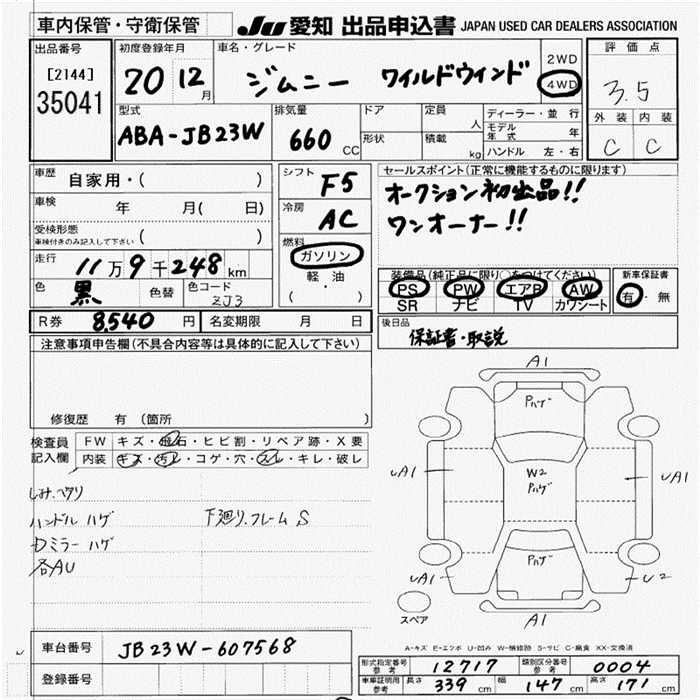 車内保管・守衛保管
JU 愛知 出品申込書 JAPAN USED CAR DEALERS ASSOCIATION
出品番号
[2144]
35041
初度登録年月
20 12月
車名・グレード
ジムニー ワイルドウィンド
2WD
4WD
評価点
3.5
外装 内装
C C
型式
ABA-JB23W
排気量
660 CC
ドア
形状
定員
人
積載
kg
ディーラー・並行
モデル年式
年
ハンドル 左・右
車歴
自家用・( )
車検
年 月( 日)
受検形態
車検付きのみ記入して下さい ( )
走行
11万9千248km
色
黒
色替
色コード
ZJ3
シフト
F5
冷房
AC
燃料
ガソリン
軽・油
( )
セールスポイント(正常に機能するものに限ります)
オークション初出品!!
ワンオーナー!!
装備品(純正品に限り○をつけてください)
PS PW エアB AW
SR ナビ TV カワシート
新車保証書
有・無
R券 8,540 円
名変期限 月 日
後日品
保証書・取説
注意事項申告欄(不具合内容等は具体的に記入して下さい)
修復歴 有(箇所 )
検査員記入欄
FW キズ・飛石・ヒビ割・リペア跡・X要
内装 キズ・汚レ・コゲ・穴・スレ・キレ・破レ
しみ.ヘタリ
ハンドル ハゲ
下廻り.フレーム S
Dミラー ハゲ
各AU
A1
Pハゲ
W2
Pハゲ
A1
A1
Pハゲ
A1
U2
A1
スペア
A-キズ E-エクボ U-凹み W-補修跡 S-サビ C-腐食 XX-交換済
車台番号
JB23W-607568
登録番号
型式指定番号 参考 12717
類別区分番号 参考 0004
車車証明用 参考 長さ 339 cm 幅 147 cm 高さ 171 cm